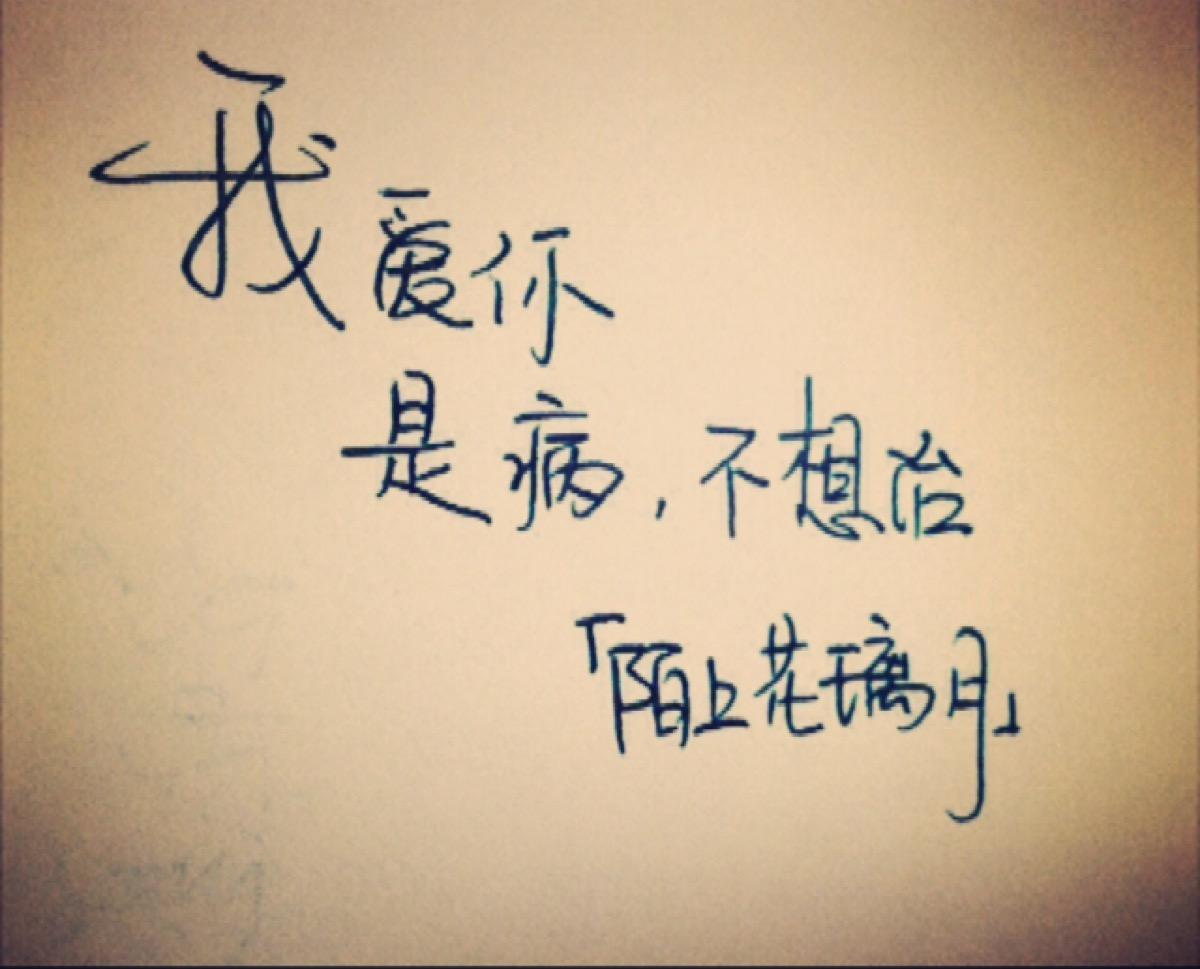 我爱你
是病,不想治
「陌上花璃月」